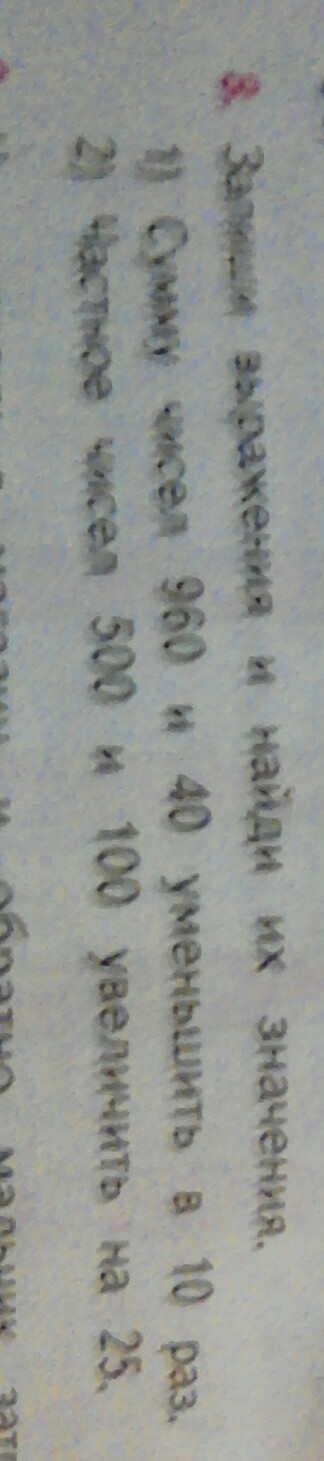 Запиши выражения и найди их значения.
1) Сумму чисел 960 и 40 уменьшить в 10 раз.
2) Частное чисел 500 и 100 увеличить на 25.
и обратно мальчик